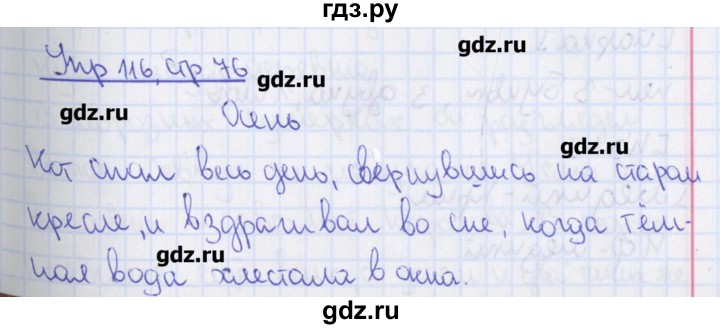 гдз.ру
Упр 116, стр 76
gdz.ru
gdz.ru
gdz.ru
Осень
gdz.ru
Кот спал весь день, свернувшись на старом
кресле, и вздрагивал во сне, когда тём-
gdz.ru
gdz.ru
ная вода хлестала в окна.
gdz.ru